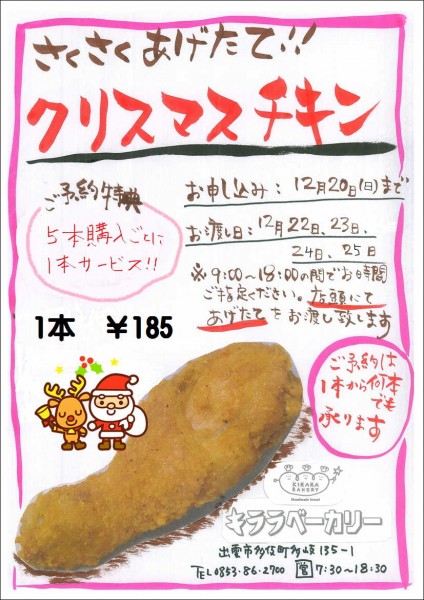 さくさくあげたて!!
クリスマスチキン
ご予約特典
5本購入ごとに
1本サービス!!
お申し込み:12月20日(日)まで
お渡し日:12月22日、23日、
24日、25日
※9:00~18:00の間でお時間
ご指定ください。店頭にて
あげたてをお渡し致します
1本 ¥185
ご予約は
1本から何本
でも
承ります
KIRARA
BAKERY
Handmade bread
キララベーカリー
出雲市多伎町多岐135-1
TEL 0853-86-2700 営 7:30~18:30